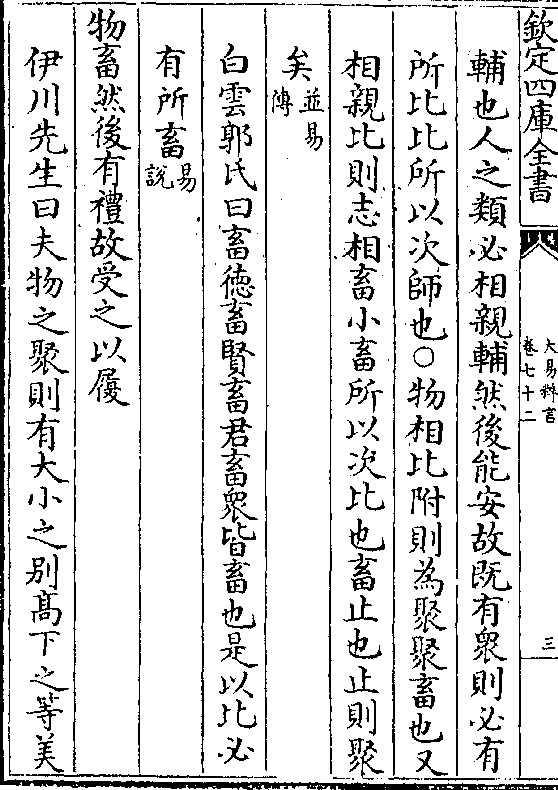 欽定四庫全書
大易粹言
卷七十二
三
輔也人之類必相親輔然後能安故既有衆則必有
所比比所以次師也○物相比附則為聚聚畜也又
相親比則志相畜小畜所以次比也畜止也止則聚
矣並易傳
白雲郭氏曰畜德畜賢畜君畜衆皆畜也是以比必
有所畜易說
物畜然後有禮故受之以履
伊川先生曰夫物之聚則有大小之别髙下之等美